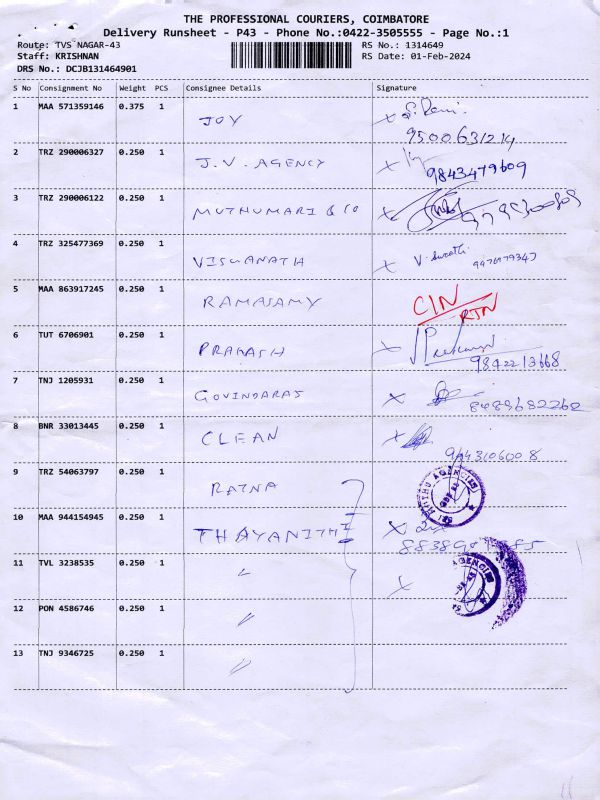 THE PROFESSIONAL COURIERS, COIMBATORE
Delivery Runsheet - P43 - Phone No.:0422-3505555 - Page No.:1
Route: TVS NAGAR-43 RS No.: 1314649
Staff: KRISHNAN RS Date: 01-Feb-2024
DRS No.: DCJB131464901
S No Consignment No Weight PCS Consignee Details Signature
1 MAA 571359146 0.375 1 JOY
9500631214
2 TRZ 290006327 0.250 1 J.V. AGENCY 9843479609
3 TRZ 290006122 0.250 1 MUTHUMARI & CO
4 TRZ 325477369 0.250 1 VISWANATH
5 MAA 863917245 0.250 1 RAMASAMY CIN RTN
6 TUT 6706901 0.250 1 PRAKASH
9842213668
7 TNJ 1205931 0.250 1 GOVINDARAJ
8489682262
8 BNR 33013445 0.250 1 CLEAN
9 TRZ 54063797 0.250 1 RATNA
10 MAA 944154945 0.250 1 THAYANITHI
11 TVL 3238535 0.250 1 "
12 PON 4586746 0.250 1 "
13 TNJ 9346725 0.250 1 "